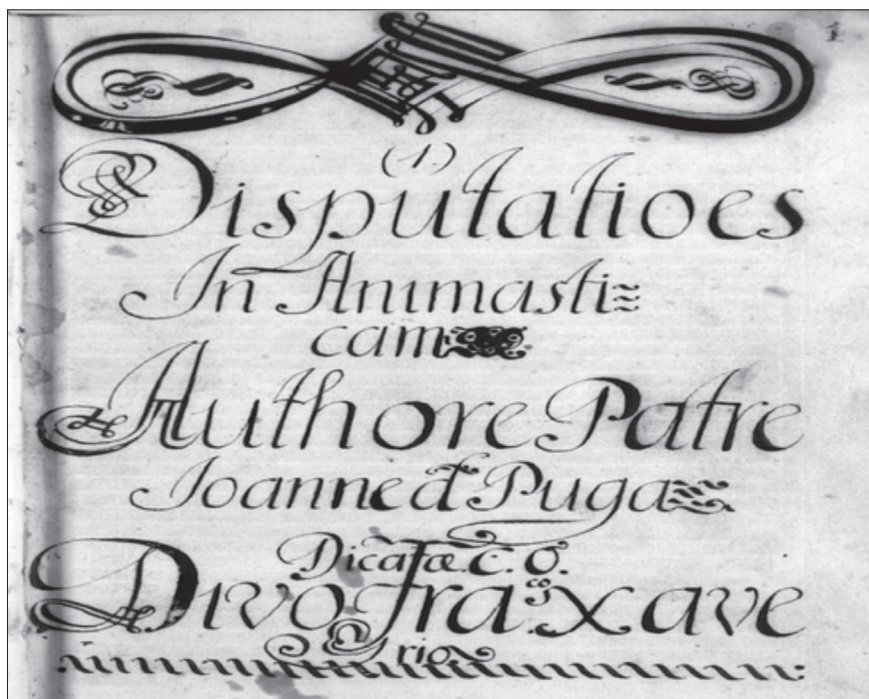 1
(1.)
Disputatioes
In Animasti
cam
Authore Patre
Joanne d Puga
Dicatæ. C. O.
Divo Fraco Xave
rio